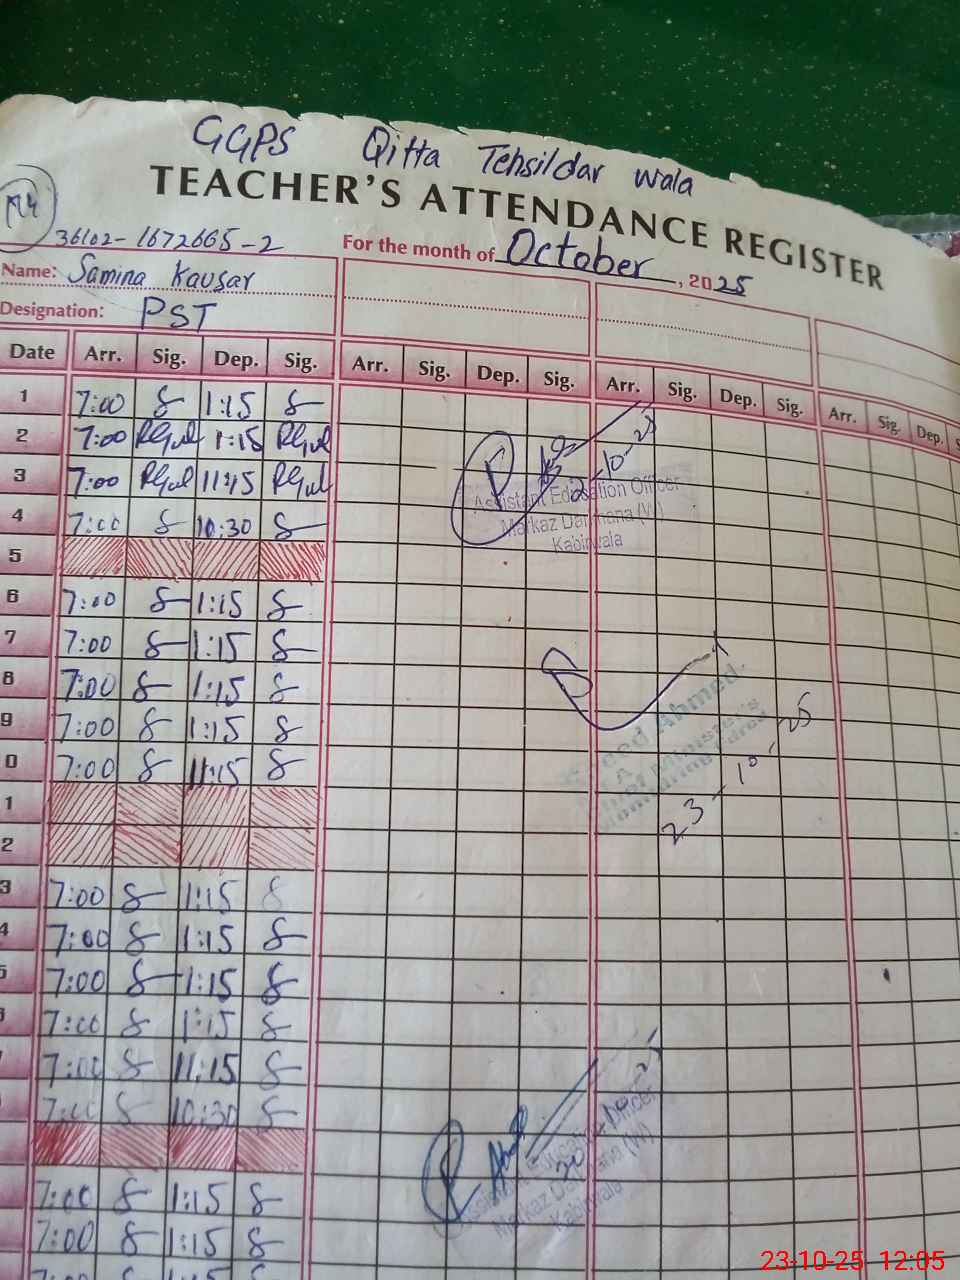 GGPS Qitta Tehsildar wala
TEACHER'S ATTENDANCE REGISTER
36102-1672665-2
For the month of October, 2025
Name: Samina Kausar
Designation: PST
Date Arr. Sig. Dep. Sig. Arr. Sig. Dep. Sig. Arr. Sig. Dep. Sig. Arr. Sig. Dep.
1 7:00 1:15
2 7:00 1:15
3 7:00 11:15
4 7:00 10:30
Assistant Education Officer
Markaz Darkhana (W)
Kabirwala
5
6 7:00 1:15
7 7:00 1:15
8 7:00 1:15
9 7:00 1:15
0 7:00 11:15
Ahmed
Chief Minister's
Monitoring Force
23-10-25
1
2
3 7:00 1:15
4 7:00 1:15
5 7:00 1:15
7:00 1:15
7:00 11:15
7:00 10:30
Assistant Education Officer
Markaz Darkhana (W)
Kabirwala
7:00 1:15
7:00 1:15
23-10-25 12:05